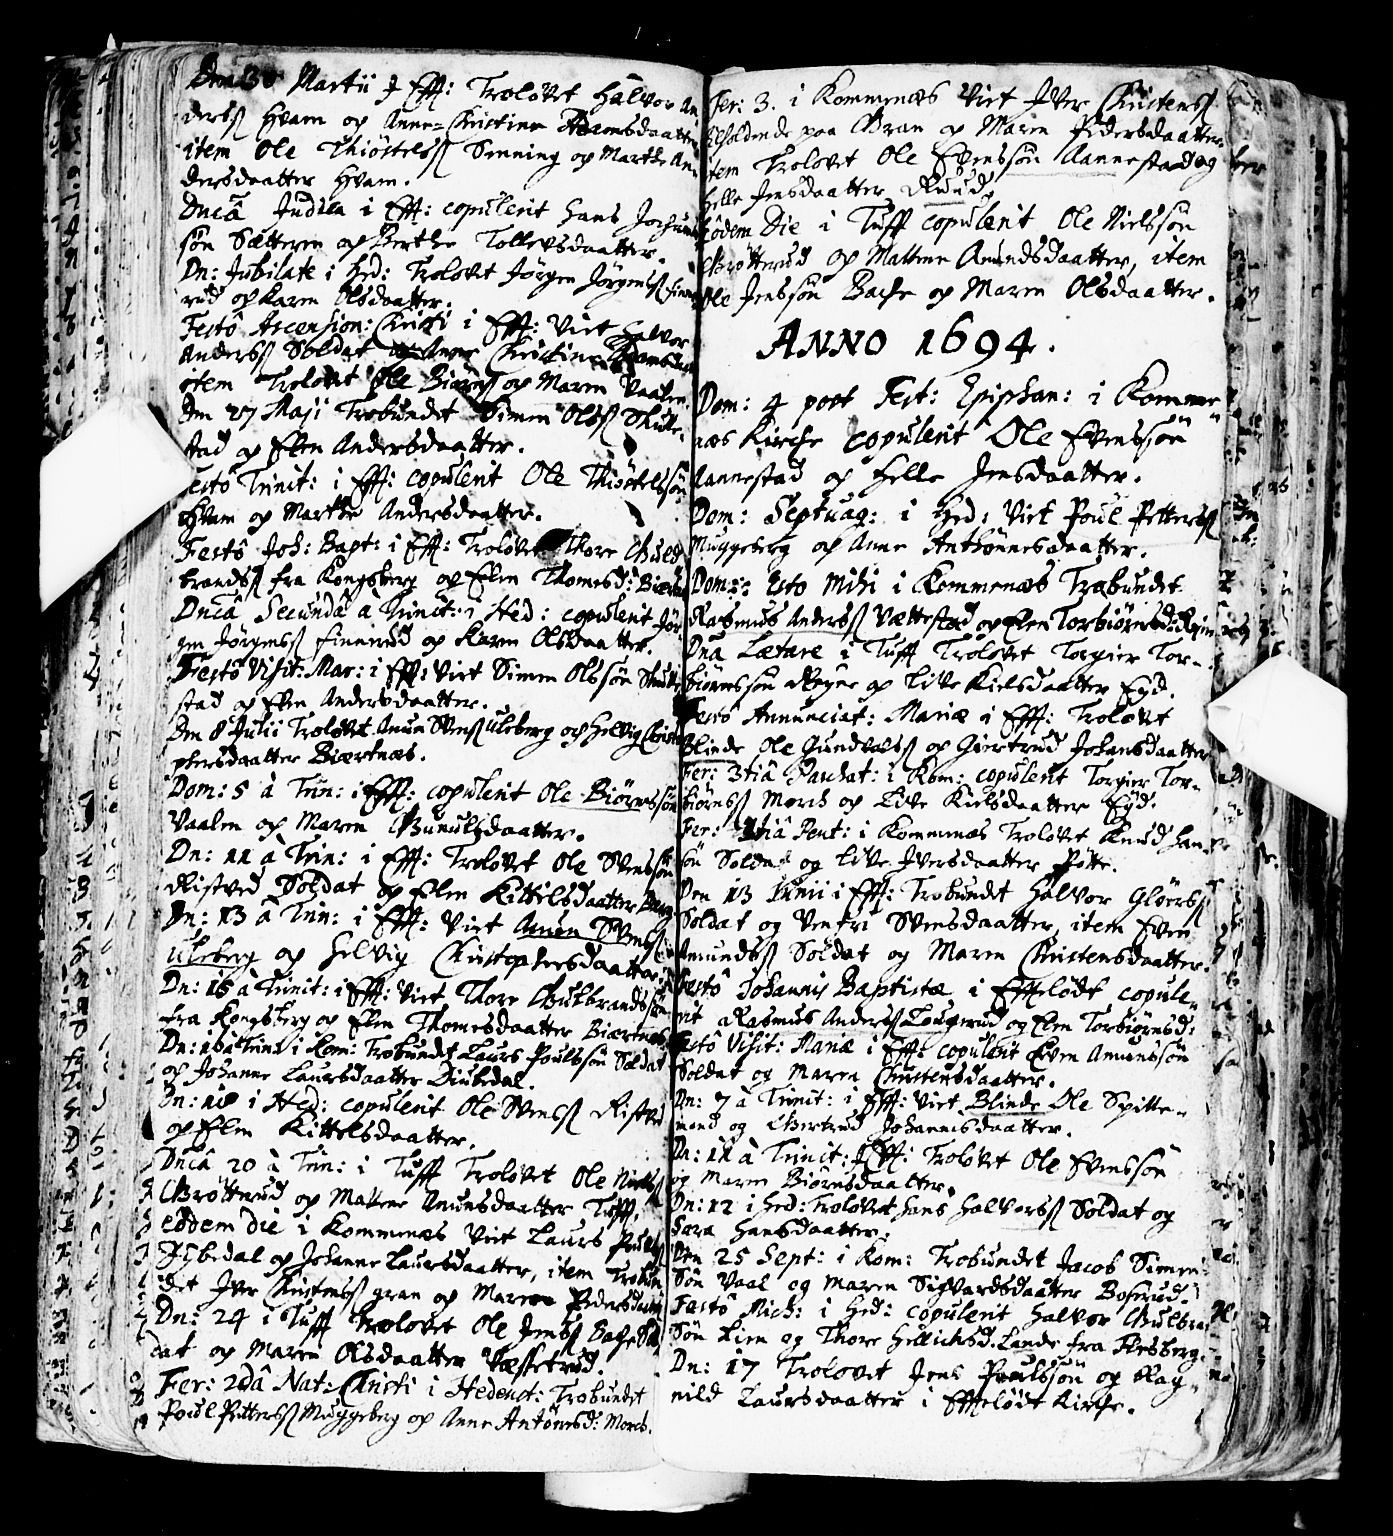 Dnca 30 Martii J Eff: Trolovet Halvor An
derss Hvam og Anne-Christine Adamsdaatter
item Ole Thiøstelss Senning og Marthe An-
dersdaatter Hvam.
Dncâ Judica i Eff: copulerit Hans Jochum
søn Sætteren og Berthe Tollevsdaatter.
Dn: Jubilate i Hed: Trolovet Jørgen Jørgenss Finne
rud og Karen Olsdaatter.
Festô Ascension: Christi i Eff: Viet Halvor
Anderss Soldat og Anne Christine Adamsda
item Trolovet Ole Biørnss og Maren Vaalen.
Dn 27 Maji Trobundet Simen Olss Skulle-
stad og Elen Andersdaatter.
Festô Trinit: i Eff: copulerit Ole Thiøstelssøn
Hvam og Marthe Andersdaatter.
Festô Joh: Bapt: i Eff: Trolovet Thore Guld
brandss fra Kongsberg og Elen Thomesd: Biærtnes
Dncâ Secunda à Trinit: i Hed: copulerit Jør
gen Jørgenss Finnerud og Karen Olsdaatter.
Festô Visit: Mar: i Eff: Viet Simen Olssøn Skulle
stad og Elen Andersdaatter.
Den 8 Julii Trolovet Amun Svenss Ulsberg og Helvig Christo
phersdaatter Biærtnæs.
Dom: 5 à Trin: i Eff: copulerit Ole Biørnssøn
Vaalen og Maren Gunulsdaatter.
Dn: 11 à Trin: i Eff: Trolovet Ole Svenssøn
Ristved Soldat og Elen Kittelsdaatter
Dn: 13 à Trin: i Eff: Viet Amun Svenss
Ulsberg og Helvig Christophersdaatter.
Dn: 15 à Trinit: i Eff: Viet Thore Gulbrandssøn
fra Kongsberg og Elen Thomesdaatter Biærtnes
Dn: à Trin: i Kom: Trobundet Laurs Poulssøn Soldat
og Johanne Laursdaatter Diubedal.
Dn: i Hed: copulerit Ole Svenss Ristved
og Elen Kittelsdaatter.
Dncâ 20 à Trin: i Tuff Trolovet Ole Nielss
Grøtterud og Mattene Amunsdaatter Tuff.
eôdem die i Kommenæs Viet Laurs Poulss
Diubedal og Johanne Laursdaatter, item Trobun
det Iver Christenss gran og Maren Pedersdaatter
Dn: 24 i Tuff Trolovet Ole Jenss Bache Sol
dat og Maren Olsdaatter
Fer: 2dâ Nat: Christi i Hedenst: Trobundet
Poul Pitterss Muggeberg og Anne Antônisd: Morch.
Fer: 3. i Kommenæs Viet Iver Christenss
sholdende paa Gran og Maren Pedersdaatter
item Trolovet Ole Evenssøn Aannestad og
Helle Jensdaatter Ruud.
Eôdem Die i Tuff copulerit Ole Nielssøn
Grøtterud og Mattene Amundsdaatter, item
Ole Jenssøn Bache og Maren Olsdaatter.
ANNO 1694.
Dom: 4 post Fest: Epiphan: i Komme-
næs Kirche copulerit Ole Evenssøn
Aannestad og Helle Jensdaatter.
Dom: Septuag: i Hed: Viet Poul Pitterss
Muggeberg og Anne Anthônnesdaatter.
Dom: Esto Mihi i Kommenæs Trobundet
Rasmus Anderss Vættestad og Elen Torbiørnsd:
Dnâ Lætare i Tuff Trolovet Torgier Tor-
biørnssøn og Live Kielsdaatter Eyd.
Festô Annunciat: Mariæ i Eff: Trolovet
Blinde Ole Gundvalss og Giertrud Johansdaatter
Fer: 3tiâ Paschat: i Kom: copulerit Torgier Tor-
biørnss Morch og Live Kielsdaatter Eyd.
Fer: 3tiâ Pent: i Kommenæs Trolovet Knud Han-
søn Soldat og Live Iversdaatter
Den 13 Junii i Eff: Trobundet Halvor Gloerss
Soldat og Venfri Svensdaatter, item Even
Amundss Soldat og Maren Christensdaatter.
Festô Johannis Baptistæ i Effteløds copule-
rit Rasmus Anderss Lougerud og Elen Torbiørnsd:
Festô Visit: Mariæ i Eff: copulerit Even Amunssøn
Soldat og Maren Christensdaatter.
Dn: 7 à Trinit: i Eff: Viet Blinde Ole Spitte-
mand og Giertrud Johannisdaatter.
Dn: 11 à Trinit: i Eff: Trolovet Ole Evenssøn
og Maren Biørnsdaatter.
Dn: 12 i Hed: Trolovet Hans Halvorss Soldat og
Sara Hansdaatter.
Den 25 Sept: i Kom: Trobundet Jacob Simen-
søn Vaal og Maren Sigvardsdaatter Boserud.
Festô Mich: i Hed: copulerit Halvor Gulbra-
søn Lien og Thore Hellichsd. Lande fra Flesberg.
Dn: 17 Trolovet Jens Poulssøn og Rag-
nild Laursdaatter i Effteløds Kirche.